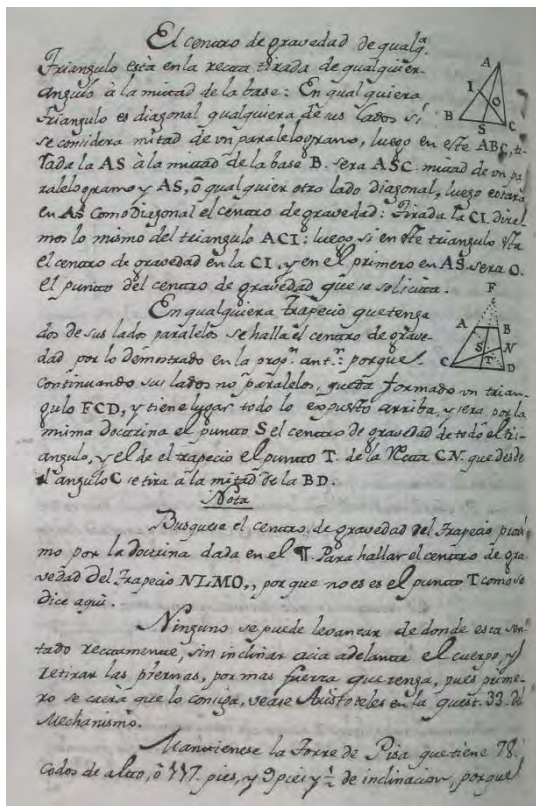 El centro de gravedad de qualq.ª
Triangulo está en la recta tirada de qualquier
angulo à la mitad de la base: En qualquiera
triangulo es diagonal qualquiera de sus lados si
se considera mitad de vn paralelogramo, luego en este ABC, ti-
rada la AS à la mitad de la base B. sera ASC mitad de vn pa
ralelogramo y AS, ô qualquier otro lado diagonal, luego estará
en AS como diagonal el centro de gravedad: Tirada la CI. dire
mos lo mismo del triangulo ACI: luego si en este triangulo está
el centro de gravedad en la CI, y en el primero en AS sera O.
el punto del centro de gravedad que se solicita.
A
I
O
B
S
C
En qualquiera trapecio que tenga
dos de sus lados paralelos se halla el centro de grave-
dad por lo demostrado en la prop.n ant.r porque
continuando sus lados no paralelos, queda formado vn trian-
gulo FCD, y tiene lugar todo lo expuesto arriba, y sera por la
misma doctrina el punto S el centro de gravedad de todo el tri-
angulo, y el de el trapecio el punto T. de la recta CN. que desde
el angulo C se tira à la mitad de la BD.
F
A
B
S
N
C
T
D
Nota
Busquese el centro de gravedad del Trapecio proxi
mo por la doctrina dada en el ¶. Para hallar el centro de gra
vedad del Trapecio NLMO,, porque no es es el punto T como se
dice aqui.
Ninguno se puede levantar de donde esta sen
tado rectamente, sin inclinar acia adelante el cuerpo, y
retirar las piernas, por mas fuerza que tenga, pues prime-
ro se caera que lo consiga, vease Aristoteles en la quest. 33. del
Mechanismo.
Mantienese la Torre de Pisa que tiene 78.
codos de alto, ô 117. pies, y 9 pies y ½ de inclinacion, porque